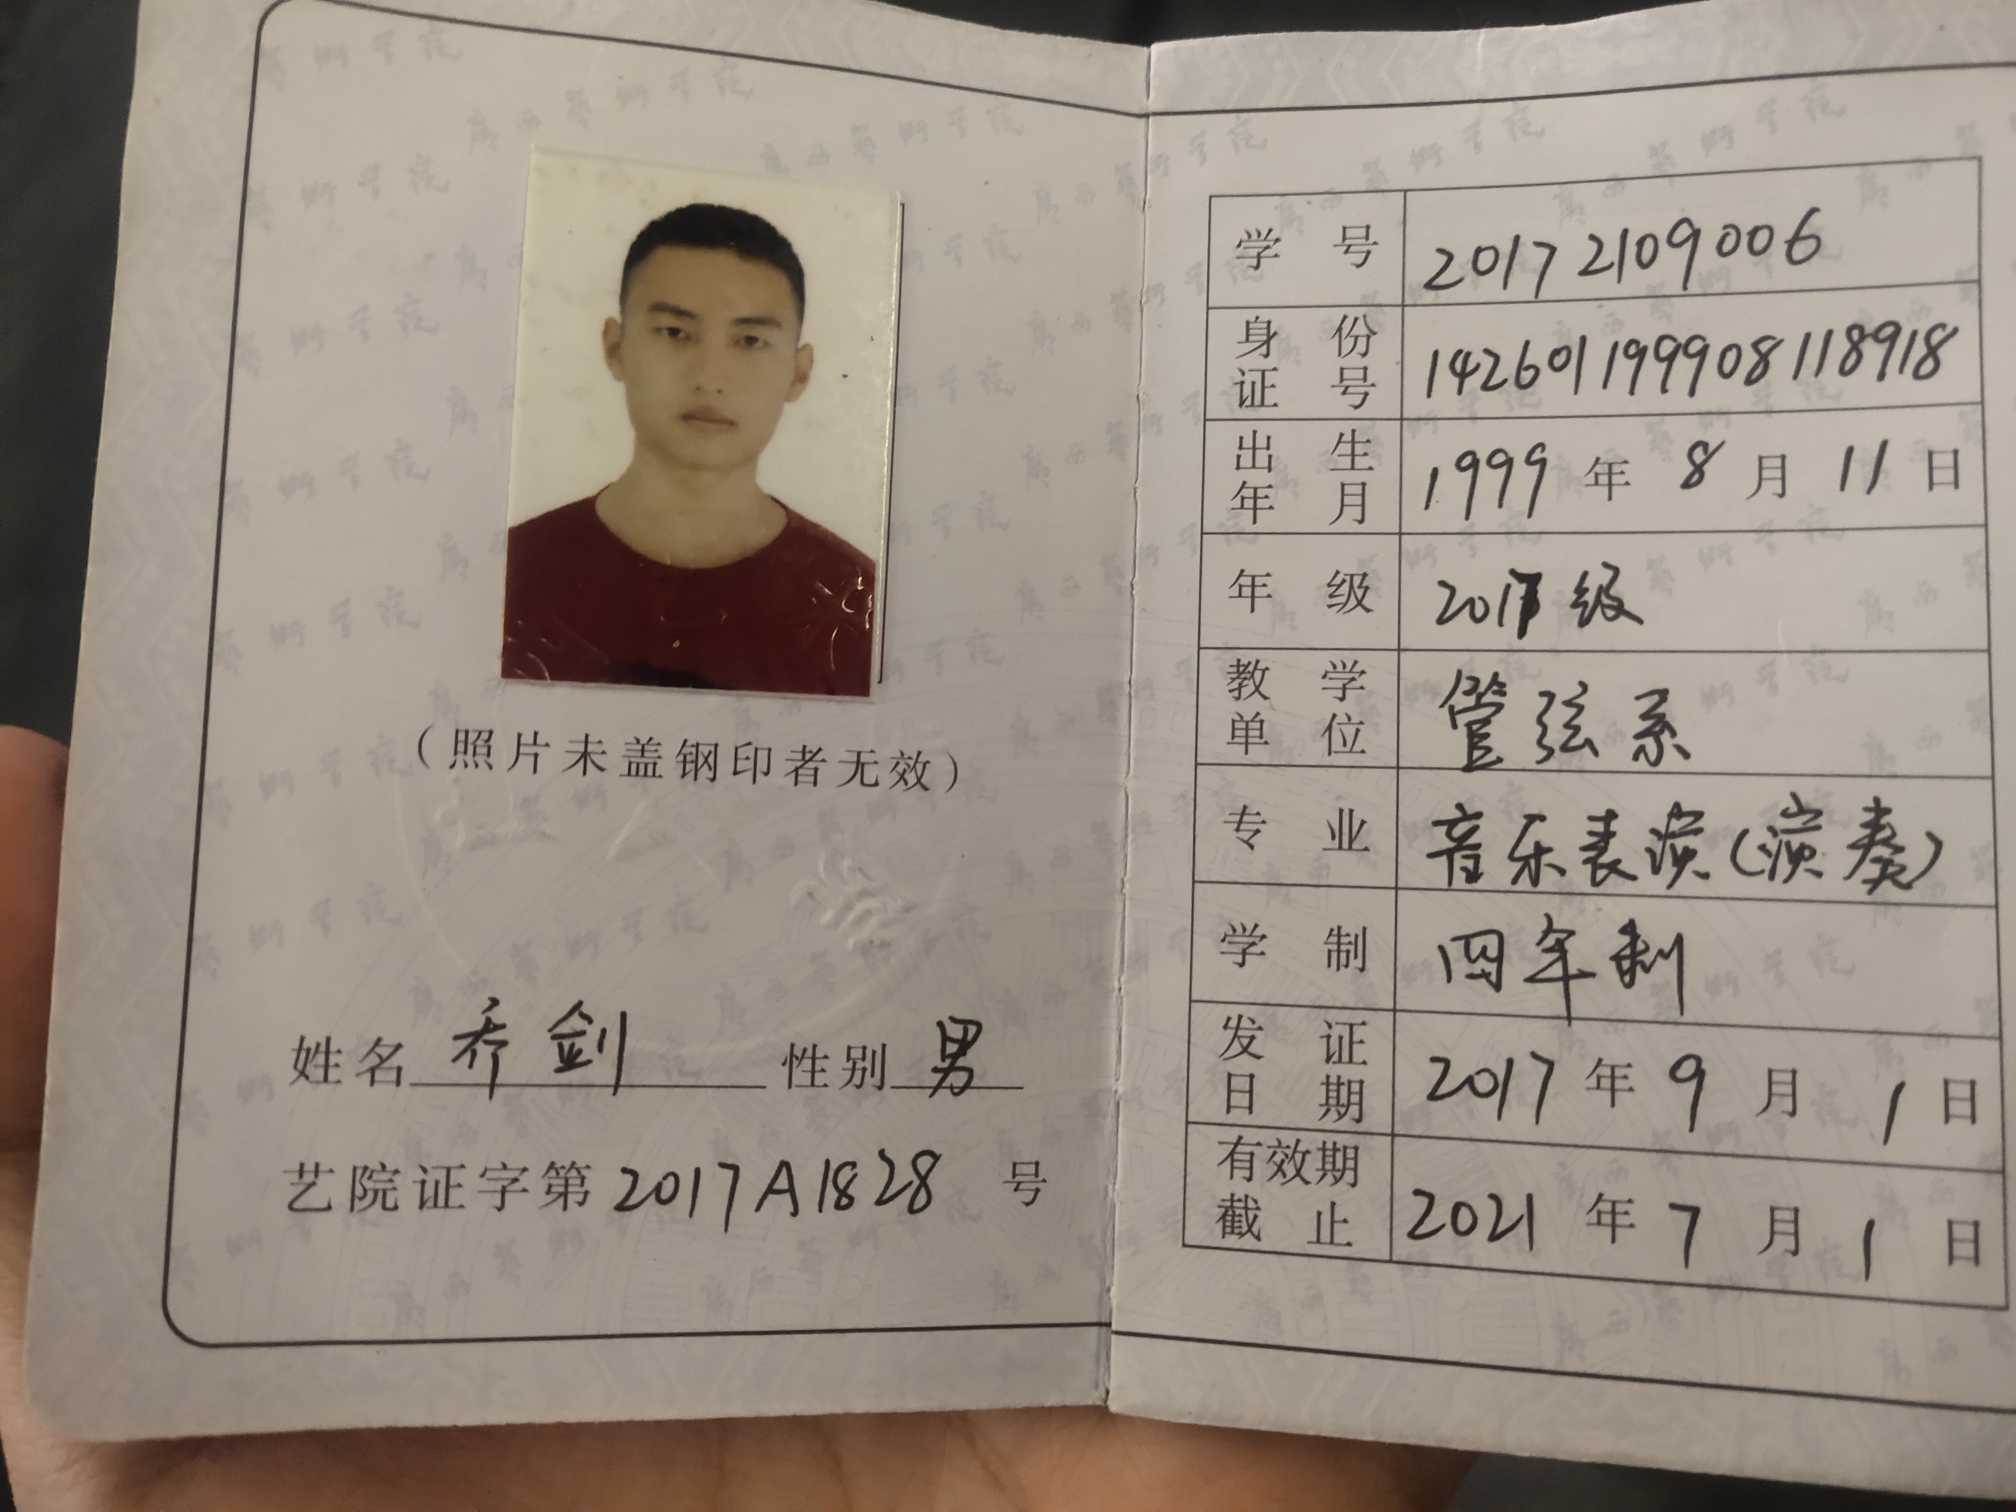 (照片未盖钢印者无效)
姓名 乔剑 性别 男
艺院证字第 2017A1828 号
学号 20172109006
身份证号 142601199908118918
出生年月 1999年8月11日
年级 2017级
教学单位 管弦系
专业 音乐表演(演奏)
学制 四年制
发证日期 2017年9月1日
有效期截止 2021年7月1日